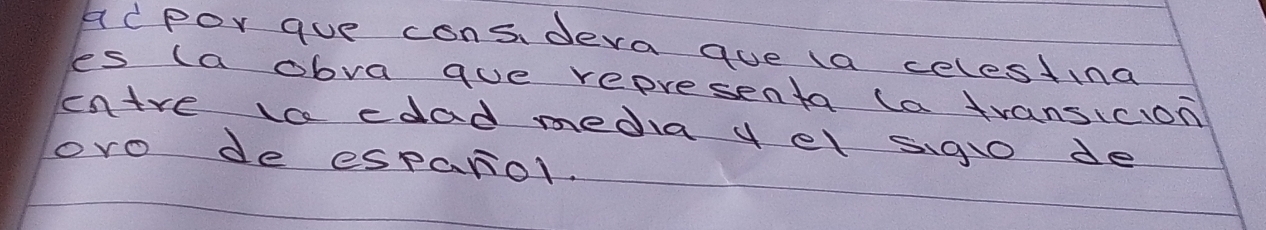 a¿por que considera que la celestina
es la obra que representa la transición
entre la edad media y el siglo de
oro de español.